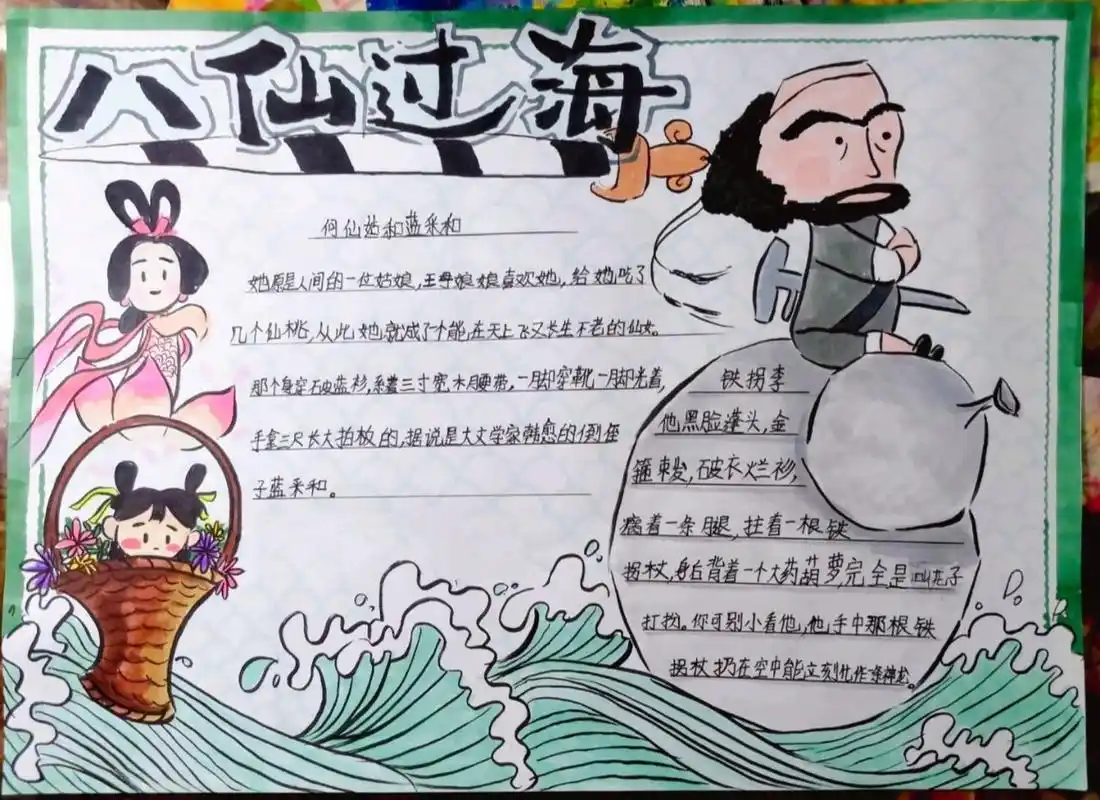 八仙过海
何仙姑和蓝采和
她原是人间的一位姑娘,王母娘娘喜欢她,给她吃了
几个仙桃,从此她就成了个能在天上飞又长生不老的仙女。
那个身穿破蓝衫,系着三寸宽木腰带,一脚穿靴一脚光着,
手拿三尺长大拍板的,据说是大文学家韩愈的侄
子蓝采和。
铁拐李
他黑脸蓬头,金
箍束发,破衣烂衫,
瘸着一条腿,拄着一根铁
拐杖,身后背着一个大药葫萝完全是叫花子
打扮。你可别小看他,他手中那根铁
拐杖扔在空中能立刻化作蛟神龙。